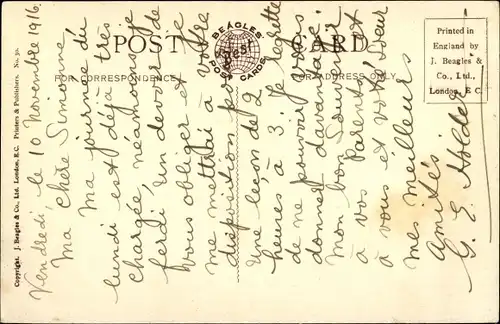 POST CARD
BEAGLES
"Best"
POST CARDS
FOR CORRESPONDENCE
FOR ADDRESS ONLY
Printed in
England by
J. Beagles &
Co., Ltd.,
London, E.C.
Copyright. J. Beagles & Co., Ltd. London, E.C. Printers & Publishers. No. 50.
Vendredi, le 10 Novembre 1916.
Ma chère Simonne
Ma journée du
lundi est déjà très
chargée, néamoins je
ferai un devoir de
vous obliger et
me mettrai à votre
disposition pour
une leçon de 2
heures à 3. Je regrette
de ne pouvoir vous
donner davantage.
Mon bon Souvenir
à vos Parents et
à vous et votre Soeur
mes meilleurs
Amitiés
G. E. Holder